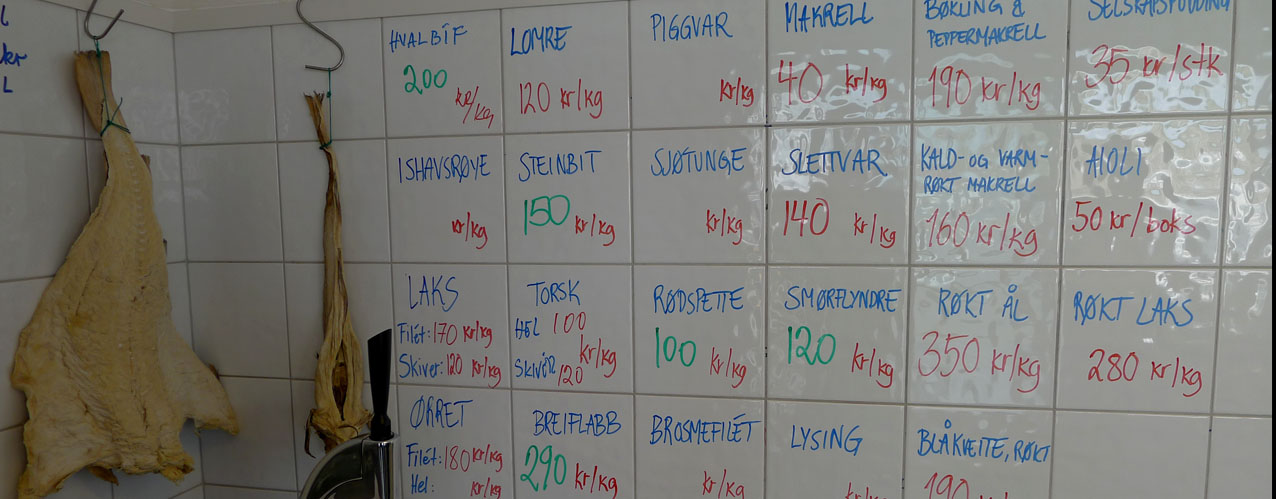 HVALBIF
200
kr/kg
LOMRE
120 kr/kg
PIGGVAR
kr/kg
MAKRELL
40 kr/kg
BØKLING &
PEPPERMAKRELL
190 kr/kg
SELSKAPSPUDDING
35 kr/stk
ISHAVSRØYE
kr/kg
STEINBIT
150 kr/kg
SJØTUNGE
kr/kg
SLETTVAR
140 kr/kg
KALD- OG VARM-
RØKT MAKRELL
160 kr/kg
AIOLI
50 kr/boks
LAKS
Filét: 170 kr/kg
Skiver: 120 kr/kg
TORSK
HEL 100
kr/kg
SKIVER 120
RØDSPETTE
100 kr/kg
SMØRFLYNDRE
120 kr/kg
RØKT ÅL
350 kr/kg
RØKT LAKS
280 kr/kg
ØRRET
Filét: 180 kr/kg
Hel: kr/kg
BREIFLABB
290 kr/kg
BROSMEFILÉT
kr/kg
LYSING
kr/kg
BLÅKVEITE, RØKT
190 kr/kg